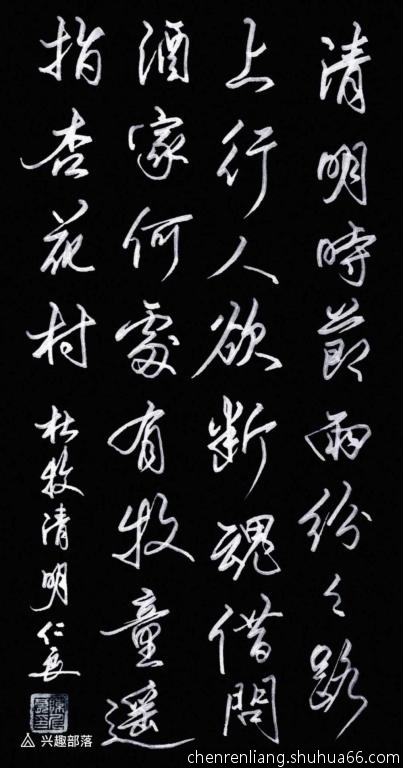 清明時節雨紛々路
上行人欲断魂借問
酒家何處有牧童遥
指杏花村
杜牧清明仁良
兴趣部落
chenrenliang.shuhua66.com